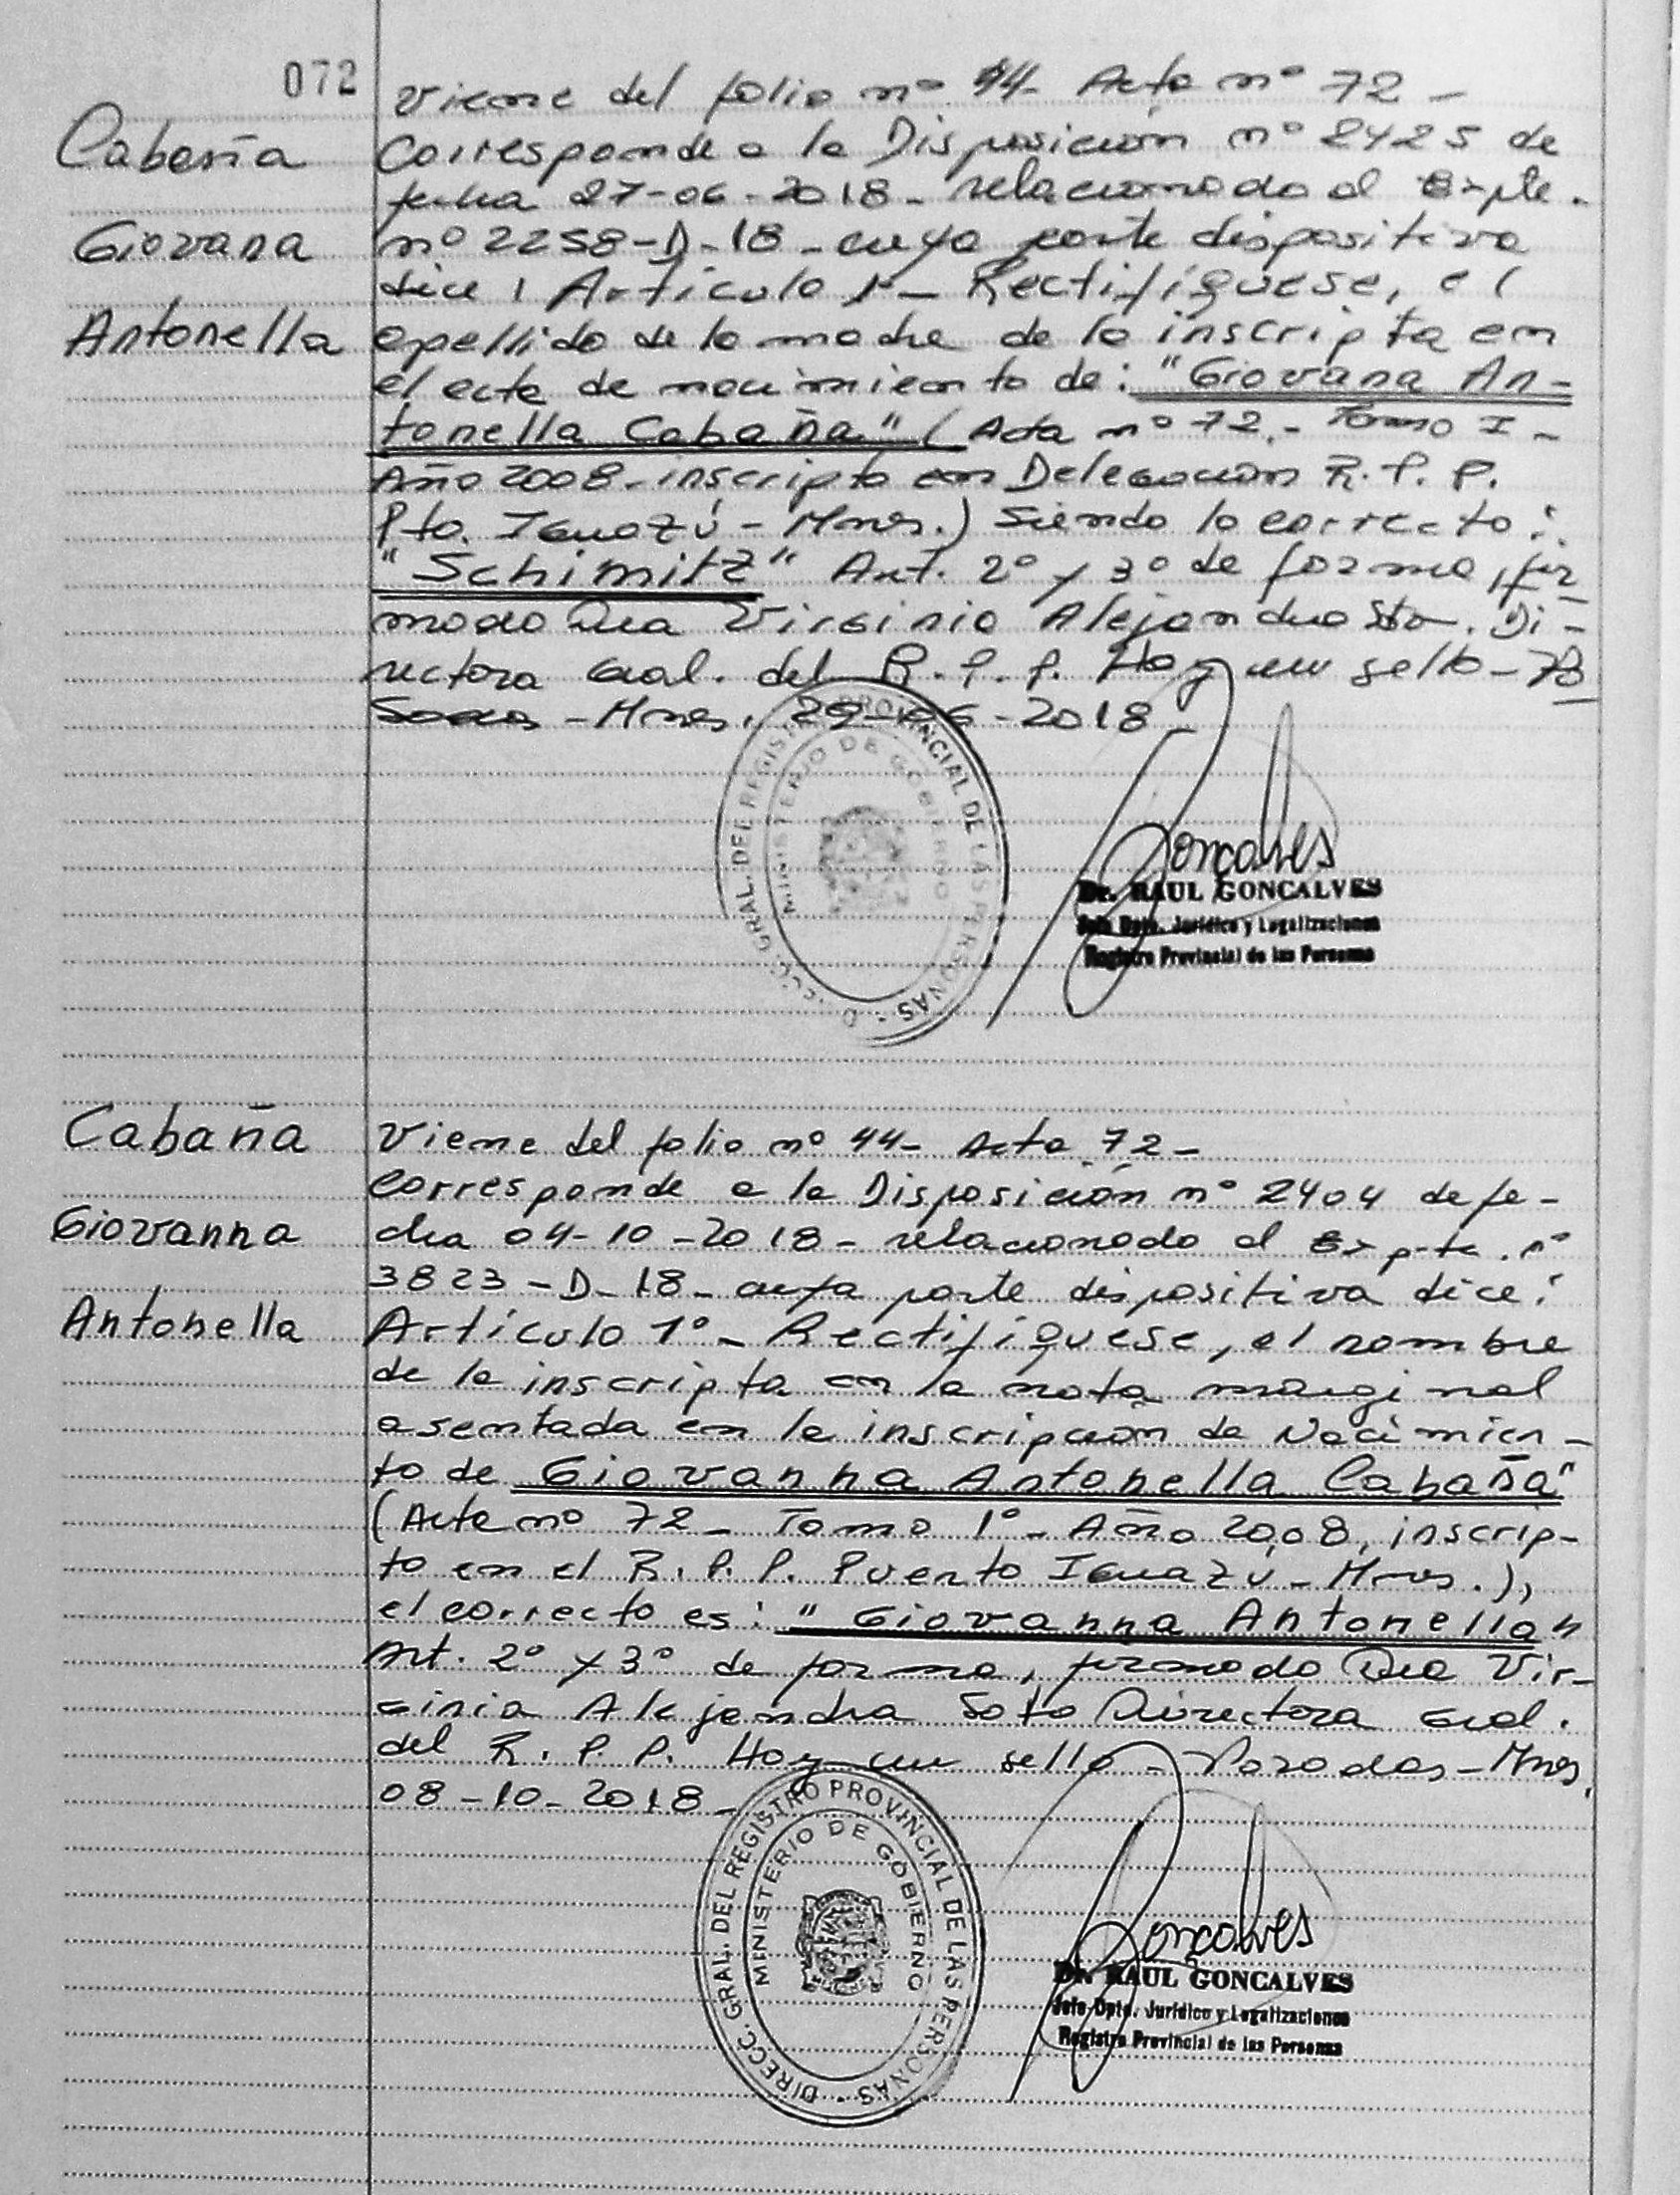 072
Cabaña
Giovana
Antonella
Viene del folio nº 44- Acta nº 72 -
Corresponde a la Disposición nº 2425 de
fecha 27-06-2018- relacionado al Expte.
nº 2258-D-18- cuya parte dispositiva
dice: Artículo 1- Rectifíquese, el
apellido de la madre de la inscripta en
el acta de nacimiento de: "Giovana An-
tonella Cabaña" (Acta nº 72.- Tomo I -
Año 2008- inscripta en Delegación R.P.P.
Pto. Iguazú - Mnes.) siendo lo correcto:
"Schimitz" Art. 2º y 3º de forma, fir
mado Dra Virginia Alejandra Di-
rectora Gral. del R.P.P. Hay un sello-
-Mnes. 29-06-2018
DIRECC. GRAL. DEL REGISTRO PROVINCIAL DE LAS PERSONAS -
MINISTERIO DE GOBIERNO
Gonçalves
Dr. RAUL GONCALVES
Jefe Dpto. Jurídico y Legalizaciones
Registro Provincial de las Personas
Cabaña
Giovanna
Antonella
Viene del folio nº 44- Acta 72-
Corresponde a la Disposición nº 2404 de fe-
cha 04-10-2018- relacionado al Expte. nº
3823-D-18- cuya parte dispositiva dice:
Artículo 1º- Rectifíquese, el nombre
de la inscripta en la nota marginal
asentada en la inscripción de Nacimien-
to de Giovanna Antonella Cabaña"
(Acta nº 72- Tomo 1º- Año 2008, inscrip-
to en el R.P.P. Puerto Iguazú- Mnes.),
el correcto es: "Giovanna Antonella"
Art. 2º y 3º de forma, firmado Dra Vir-
ginia Alejandra Soto Directora Gral.
del R.P.P. Hay un sello- Posadas-Mnes,
08-10-2018-
DIRECC. GRAL. DEL REGISTRO PROVINCIAL DE LAS PERSONAS -
MINISTERIO DE GOBIERNO
Gonçalves
Dr. RAUL GONCALVES
Jefe Dpto. Jurídico y Legalizaciones
Registro Provincial de las Personas